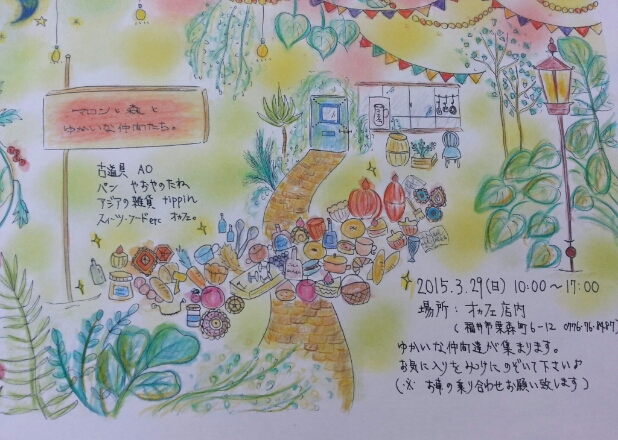 マロンと森と
ゆかいな仲間たち。
古道具 AO
パン やおやのたね
アジアの雑貨 tippin
スイーツ・フード etc オカフェ。
2015.3.29(日) 10:00〜17:00
場所: オカフェ店内
(福井市栗森町6-12 0776-76-8487)
ゆかいな仲間達が集まります。
お気に入りをみつけにのぞいて下さい♪
(※ お車の乗り合わせお願い致します)